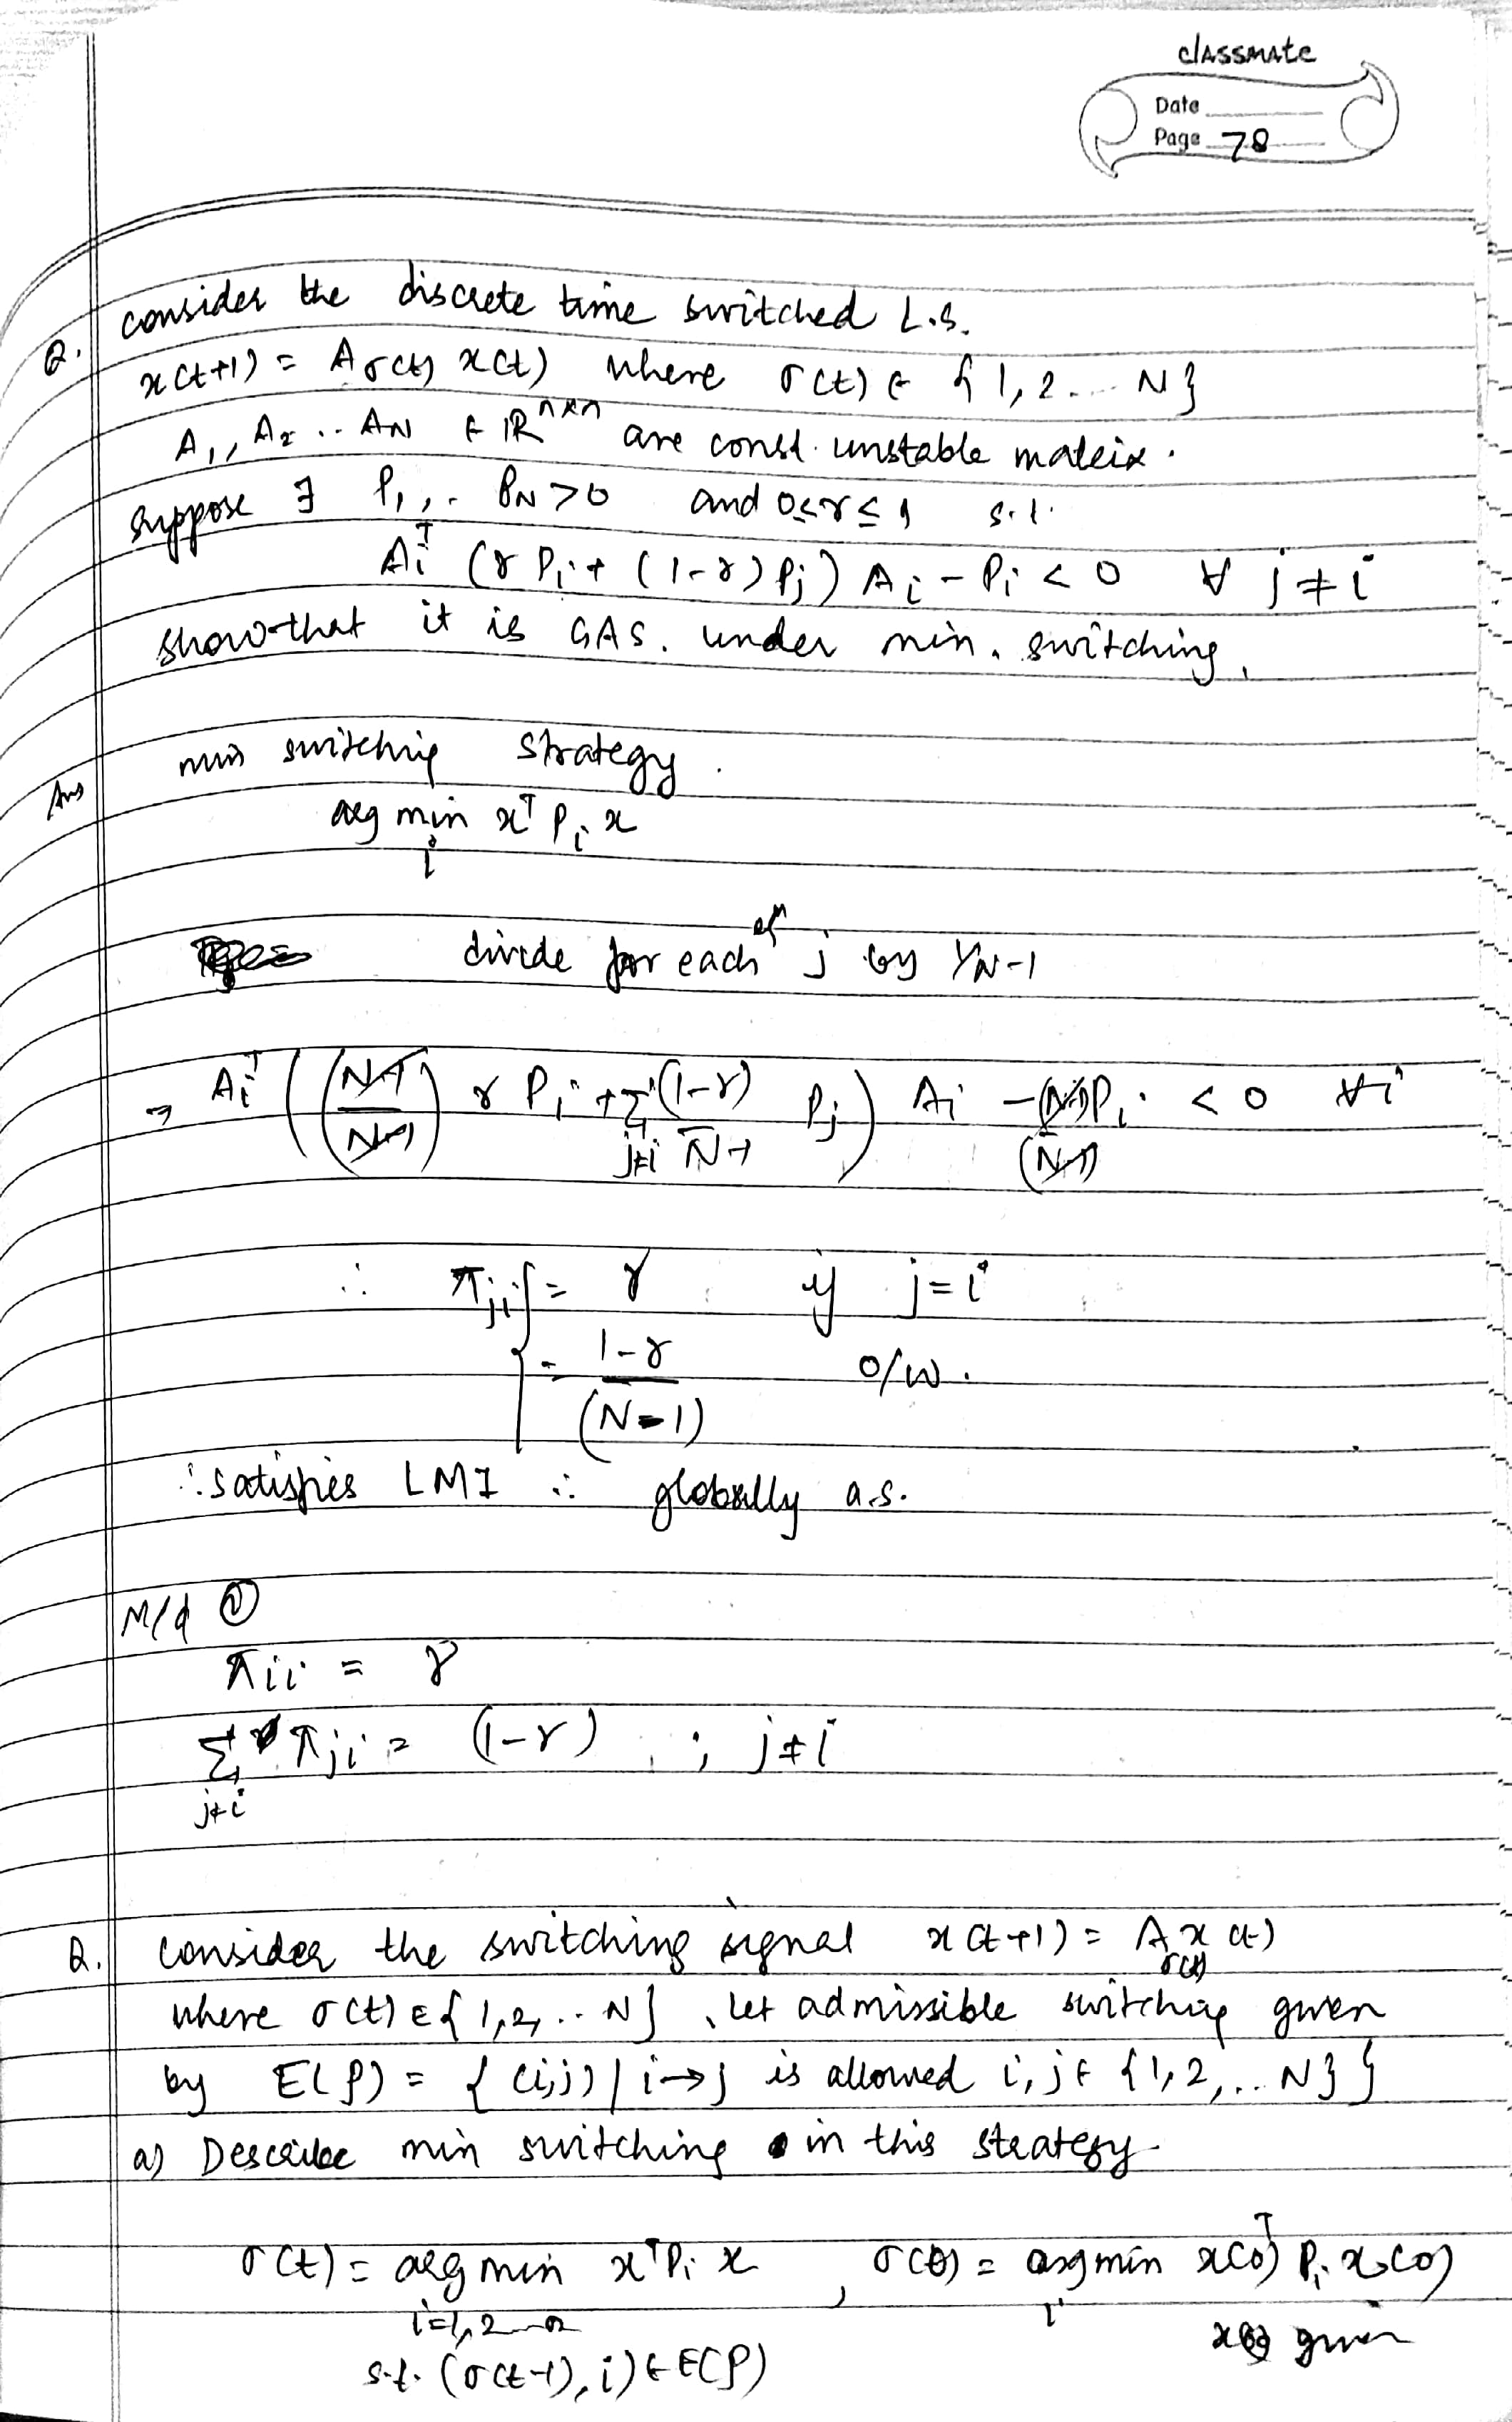 classmate
Date
Page 78
Q. consider the discrete time switched L.S.
x(t+1) = Aσ(t) x(t) where σ(t) ∈ {1, 2 ... N}
A1, A2 .. AN ∈ IR^{n×n} are const. unstable matrix.
suppose ∃ P1, .. PN > 0 and 0≤γ≤1 s.t.
Ai^T (γ Pi + (1-γ) Pj) Ai - Pi < 0 ∀ j ≠ i
show that it is GAS. under min. switching.
Ans min switching strategy.
arg min_i x^T Pi x
divide for each eqn j by 1/N-1
⇒ Ai^T ( (N-1)/(N-1) γ Pi + Σ_{j≠i} (1-γ)/(N-1) Pj ) Ai - (N-1)Pi/(N-1) < 0 ∀i
∴ πji { = γ if j = i
= 1-γ/(N-1) o/w.
∴ satisfies LMI ∴ globally a.s.
M/d ②
πii = γ
Σ_{j≠i} πji = (1-γ) ; j≠i
Q. consider the switching signal x(t+1) = A_{σ(t)} x(t)
where σ(t) ∈ {1, 2, .. N}, let admissible switching given
by E(P) = { (i,j) | i→j is allowed i, j ∈ {1, 2, .. N} }
a) Describe min switching in this strategy
σ(t) = arg min x^T Pi x , σ(0) = arg min_i x(0)^T Pi x(0)
i=1, 2 ... n x(0) given
s.t. (σ(t-1), i) ∈ E(P)